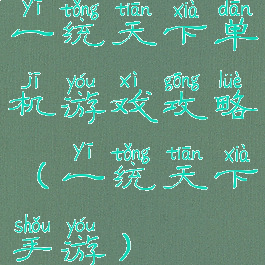 yī tǒng tiān xià dān
一统天下单
jī yóu xì gōng lüè
机游戏攻略
yī tǒng tiān xià
（一统天下
shǒu yóu
手游）